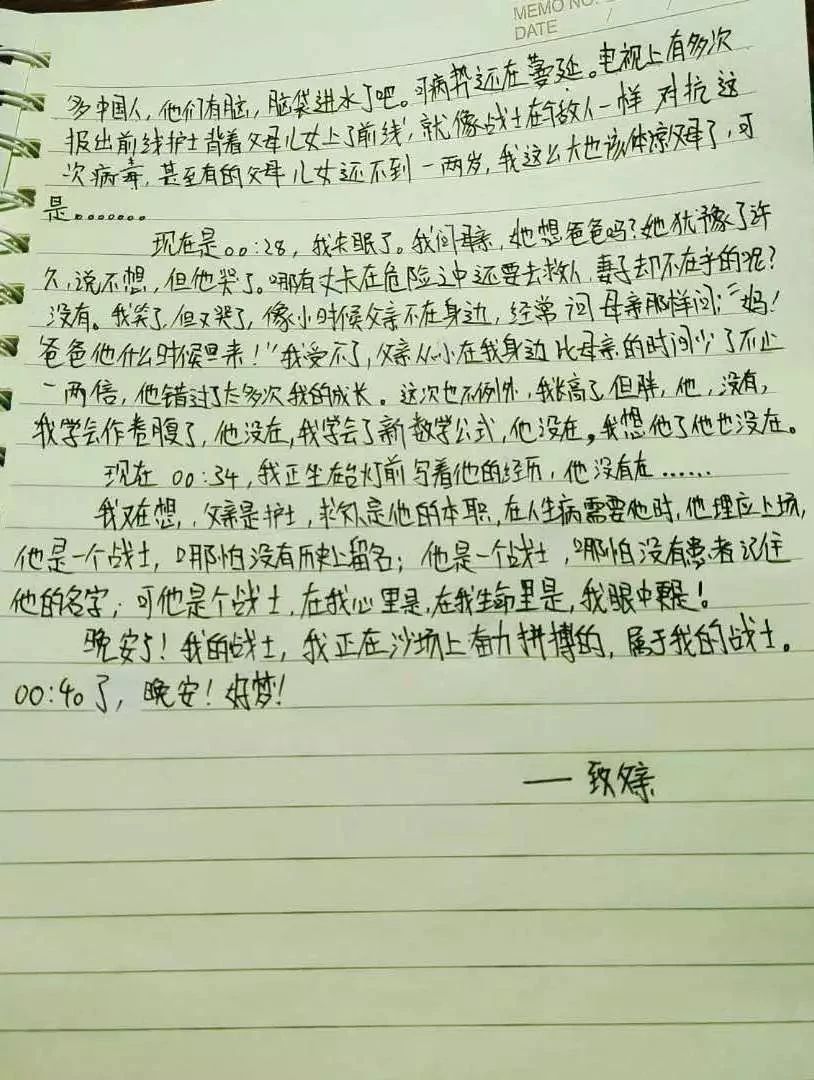 MEMO NO.
DATE / /
多中国人，他们有脑，脑袋进水了吧。可病势还在蔓延。电视上有多次
报出前线护士背着父母儿女上了前线，就像战士在敌人一样 对抗这
次病毒，甚至有的父母儿女还不到一两岁，我这么大也该体凉父母了，可
是.......
现在是00:28，我失眠了。我问母亲，她想爸爸吗？她犹豫了许
久，说不想，但他哭了。哪有丈夫在危险之中还要去救人，妻子却不在乎的呢？
没有。我笑了，但又哭了，像小时候父亲不在身边，经常问母亲那样问："妈！
爸爸他什么时候回来！"我受不了，父亲从小在我身边比母亲的时间少了不止
一两倍，他错过了太多次我的成长。这次也不例外，我长高了，但胖，他，没有，
我学会作卷腹了，他没在，我学会了新数学公式，他没在。我想他了他也没在。
现在 00:34，我正坐在台灯前写着他的经历，他没有在......
我又在想，父亲是护士，救人是他的本职，在人生病需要他时，他理应上场，
他是一个战士，哪怕没有历史上留名；他是一个战士，哪怕没有患者记住
他的名字，可他是个战士，在我心里是，在我生命里是，我眼中更是！
晚安了！我的战士，我正在沙场上奋力拼搏的，属于我的战士。
00:40了，晚安！好梦！
——致父亲